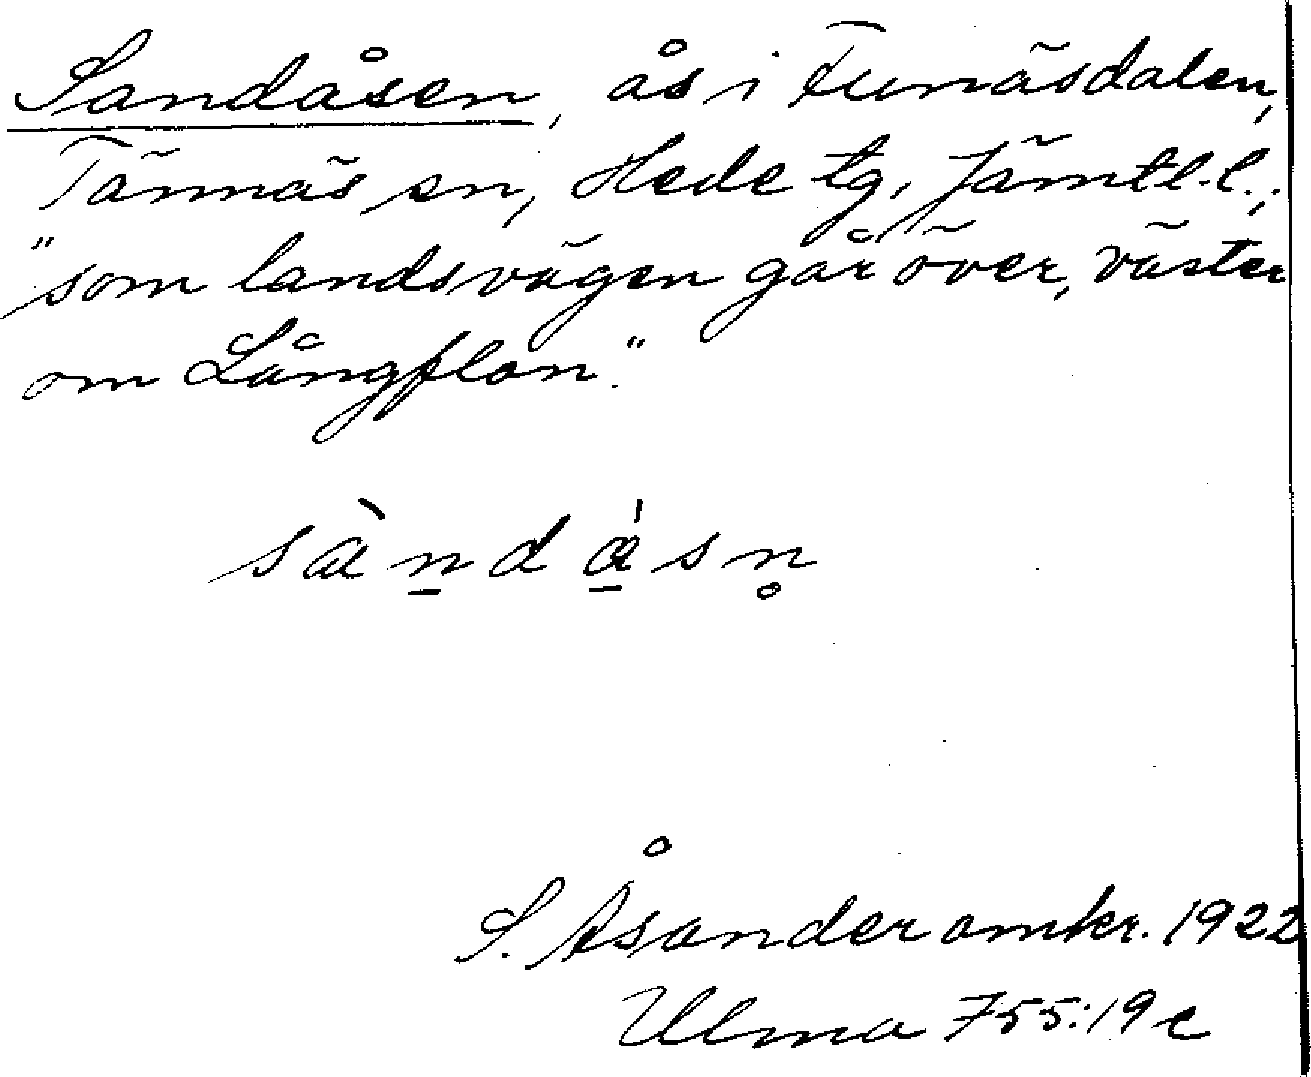 Sandåsen, ås i Funäsdalen,
Tännäs sn, Hede tg, Jämtl. l.;
"som landsvägen går över, väster
om Långflon."
sà̀n̠da̠̍sn̥
S. Åsander omkr. 1922
Ulma 755:19 c